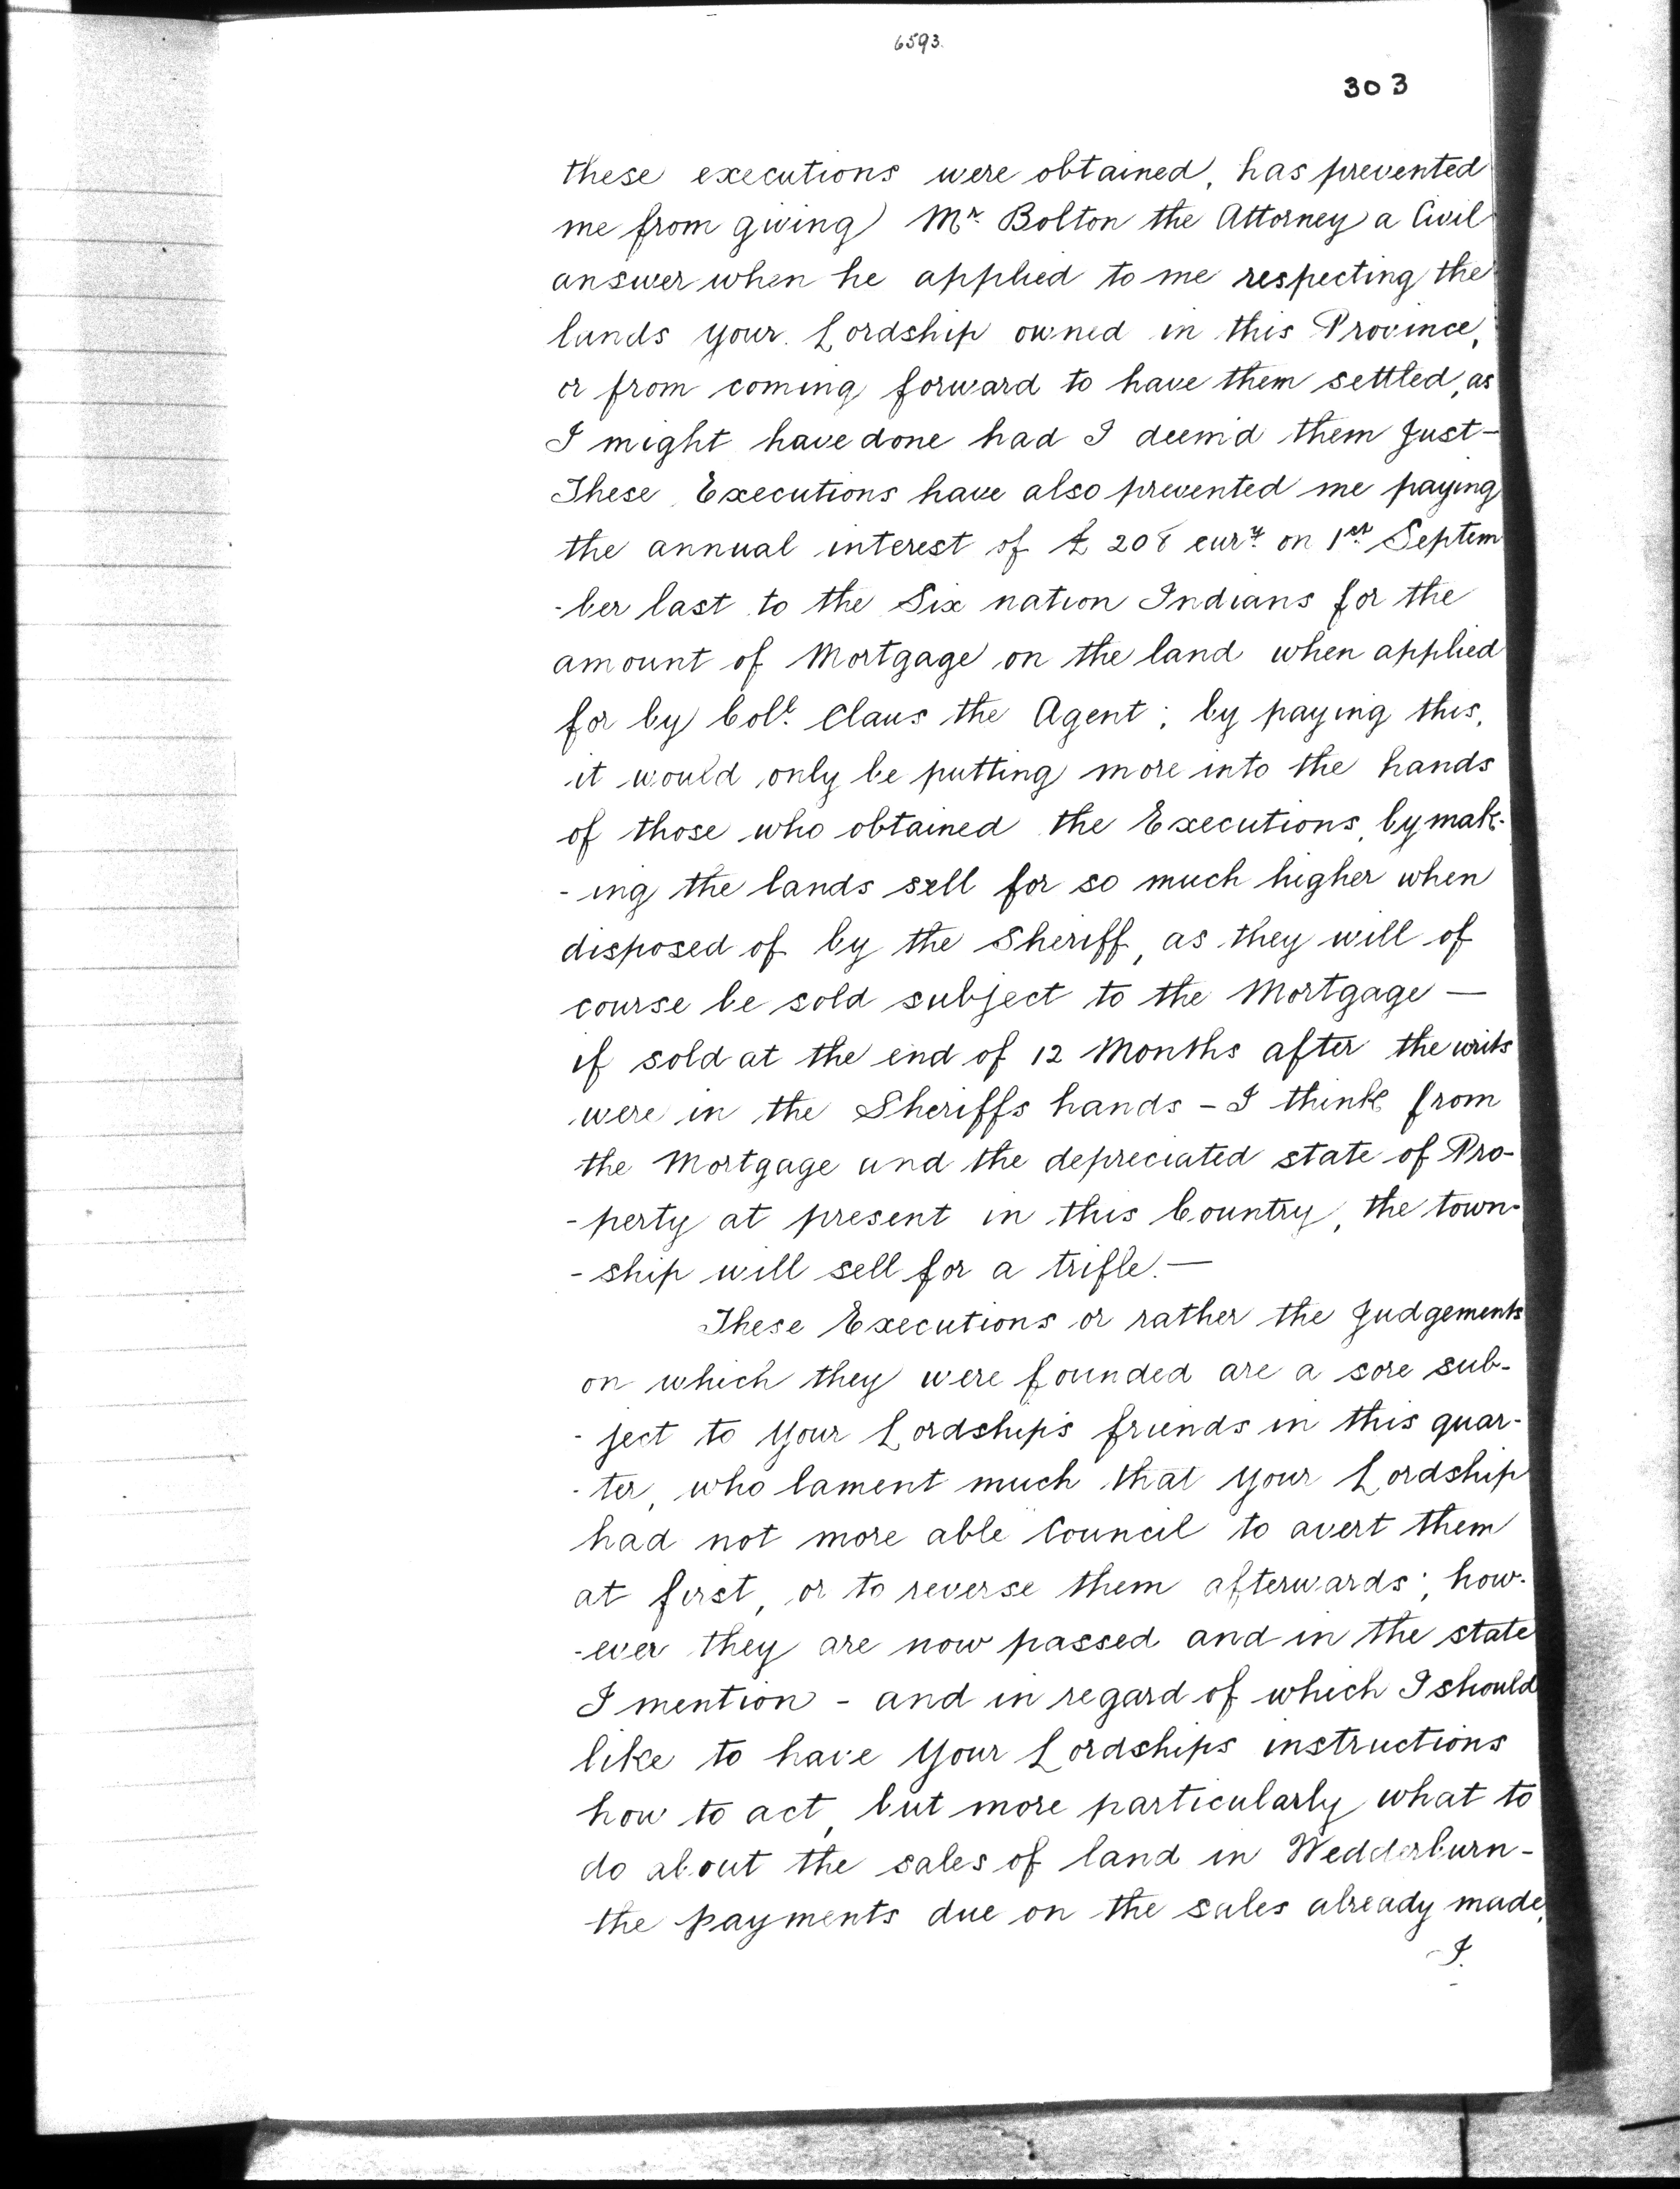 6593.
303
these executions were obtained, has prevented
me from giving Mr. Bolton the Attorney a Civil
answer when he applied to me respecting the
lands your Lordship owned in this Province,
or from coming forward to have them settled, as
I might have done had I deem'd them Just-
These Executions have also prevented me paying
the annual interest of £ 208 curr.y on 1st Septem
-ber last to the Six nation Indians for the
amount of Mortgage on the land when applied
for by Coll. Claus the Agent; by paying this,
it would only be putting more into the hands
of those who obtained the Executions, by mak-
-ing the lands sell for so much higher when
disposed of by the Sheriff, as they will of
course be sold subject to the Mortgage —
if sold at the end of 12 Months after the writs
were in the Sheriffs hands - I think from
the Mortgage and the depreciated state of Pro-
-perty at present in this Country, the town-
-ship will sell for a trifle.—
These Executions or rather the Judgements
on which they were founded are a sore sub-
-ject to Your Lordship's friends in this quar-
-ter, who lament much that Your Lordship
had not more able Council to avert them
at first, or to reverse them afterwards; how-
-ever they are now passed and in the state
I mention - and in regard of which I should
like to have Your Lordships instructions
how to act, but more particularly what to
do about the sales of land in Wedderburn-
the payments due on the sales already made,
I.